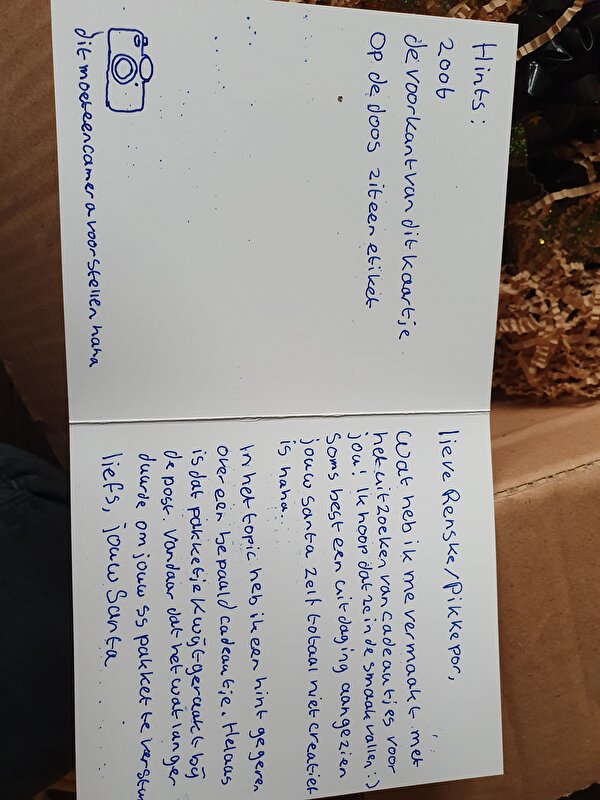 Hints:
2006
de voorkant van dit kaartje
Op de doos zit een etiket
dit moet een camera voorstellen haha
lieve Renske/Pikkepor,
Wat heb ik me vermaakt met
het uitzoeken van cadeautjes voor
jou! Ik hoop dat ze in de smaak vallen :)
Soms best een uitdaging aangezien
jouw Santa zelf totaal niet creatief
is haha.
In het topic heb ik een hint gegeven
over een bepaald cadeautje. Helaas
is dat pakketje kwijtgeraakt bij
de post. Vandaar dat het wat langer
duurde om jouw ss pakket te
liefs, jouw Santa